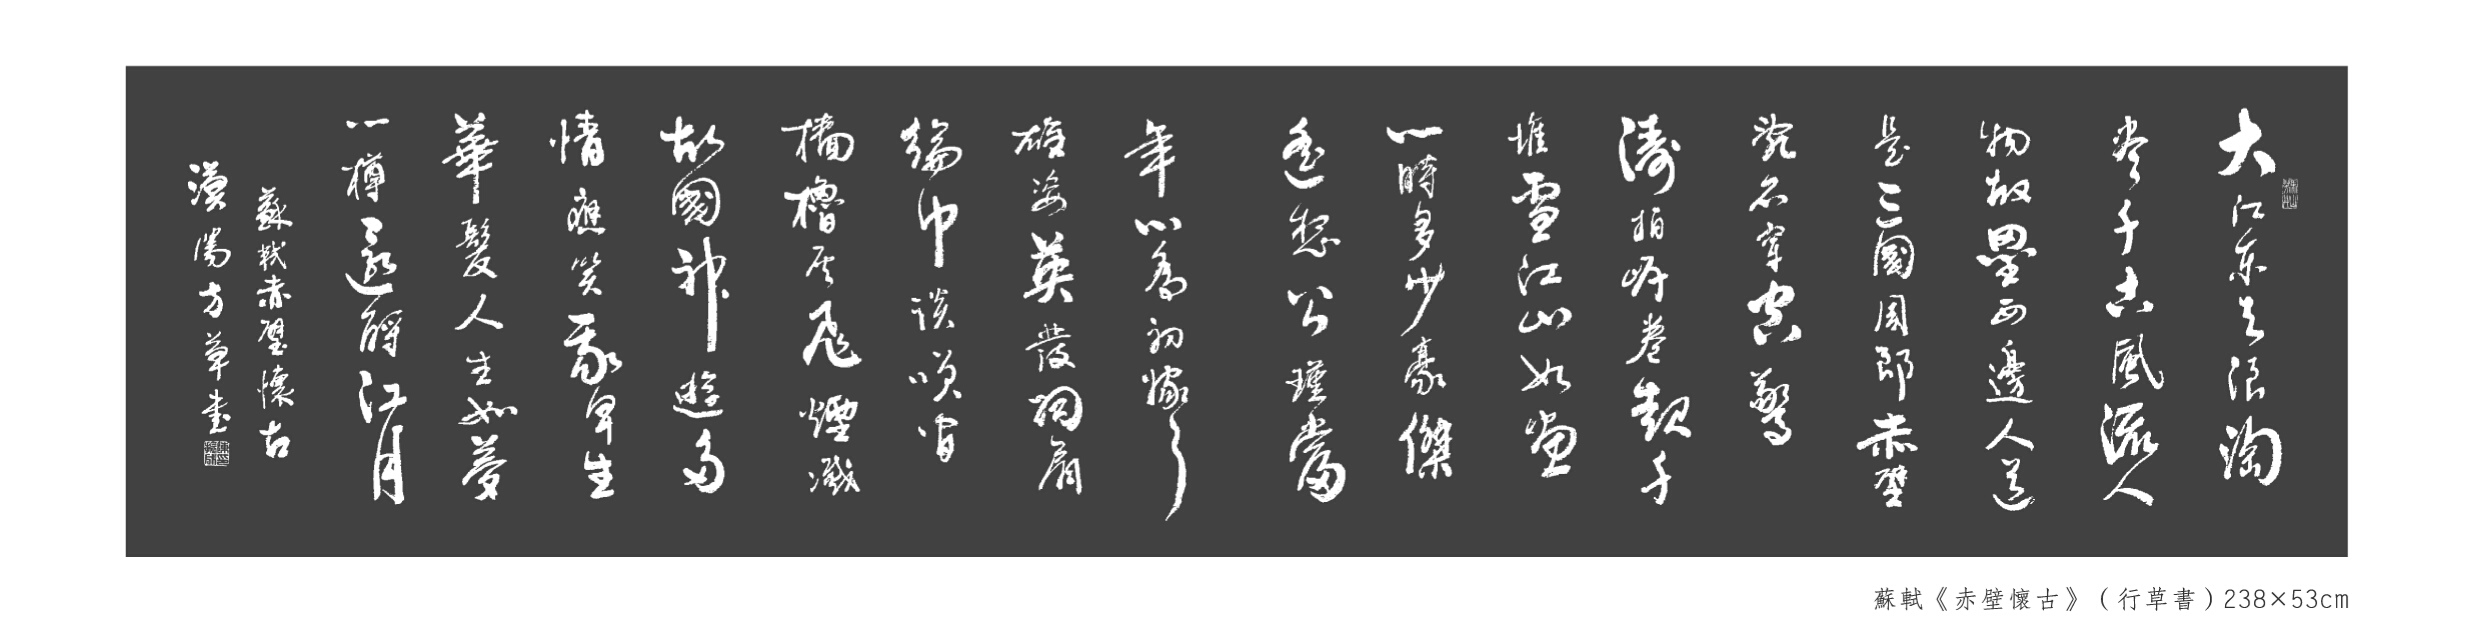 大江東去浪淘
盡千古風流人
物故壘西邊人道
是三國周郎赤壁
亂石穿空驚
濤拍岸卷起千
堆雪江山如畫
一時多少豪傑
遙想公瑾當
年小喬初嫁了
雄姿英發羽扇
綸巾談笑間
檣櫓灰飛煙滅
故國神遊多
情應笑我早生
華髮人生如夢
一樽還酹江月
蘇軾赤壁懷古
漢陽方草書
蘇軾《赤壁懷古》（行草書）238×53cm